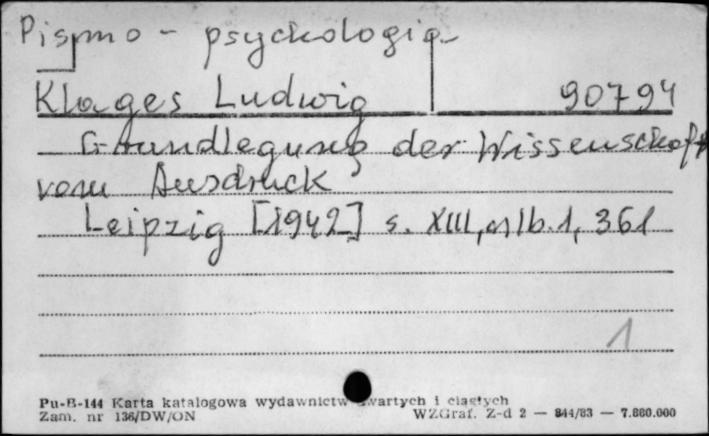 Pismo - psychologia
Klages Ludwig 90794
Grundlegung der Wissenschaft
vom Ausdruck
Leipzig [1942] s. XIII, 1, 361
1
Pu-B-144 Karta katalogowa wydawnictw zwartych i ciągłych
Zam. nr 136/DW/ON WZGraf. Z-d 2 — 844/83 — 7.880.000